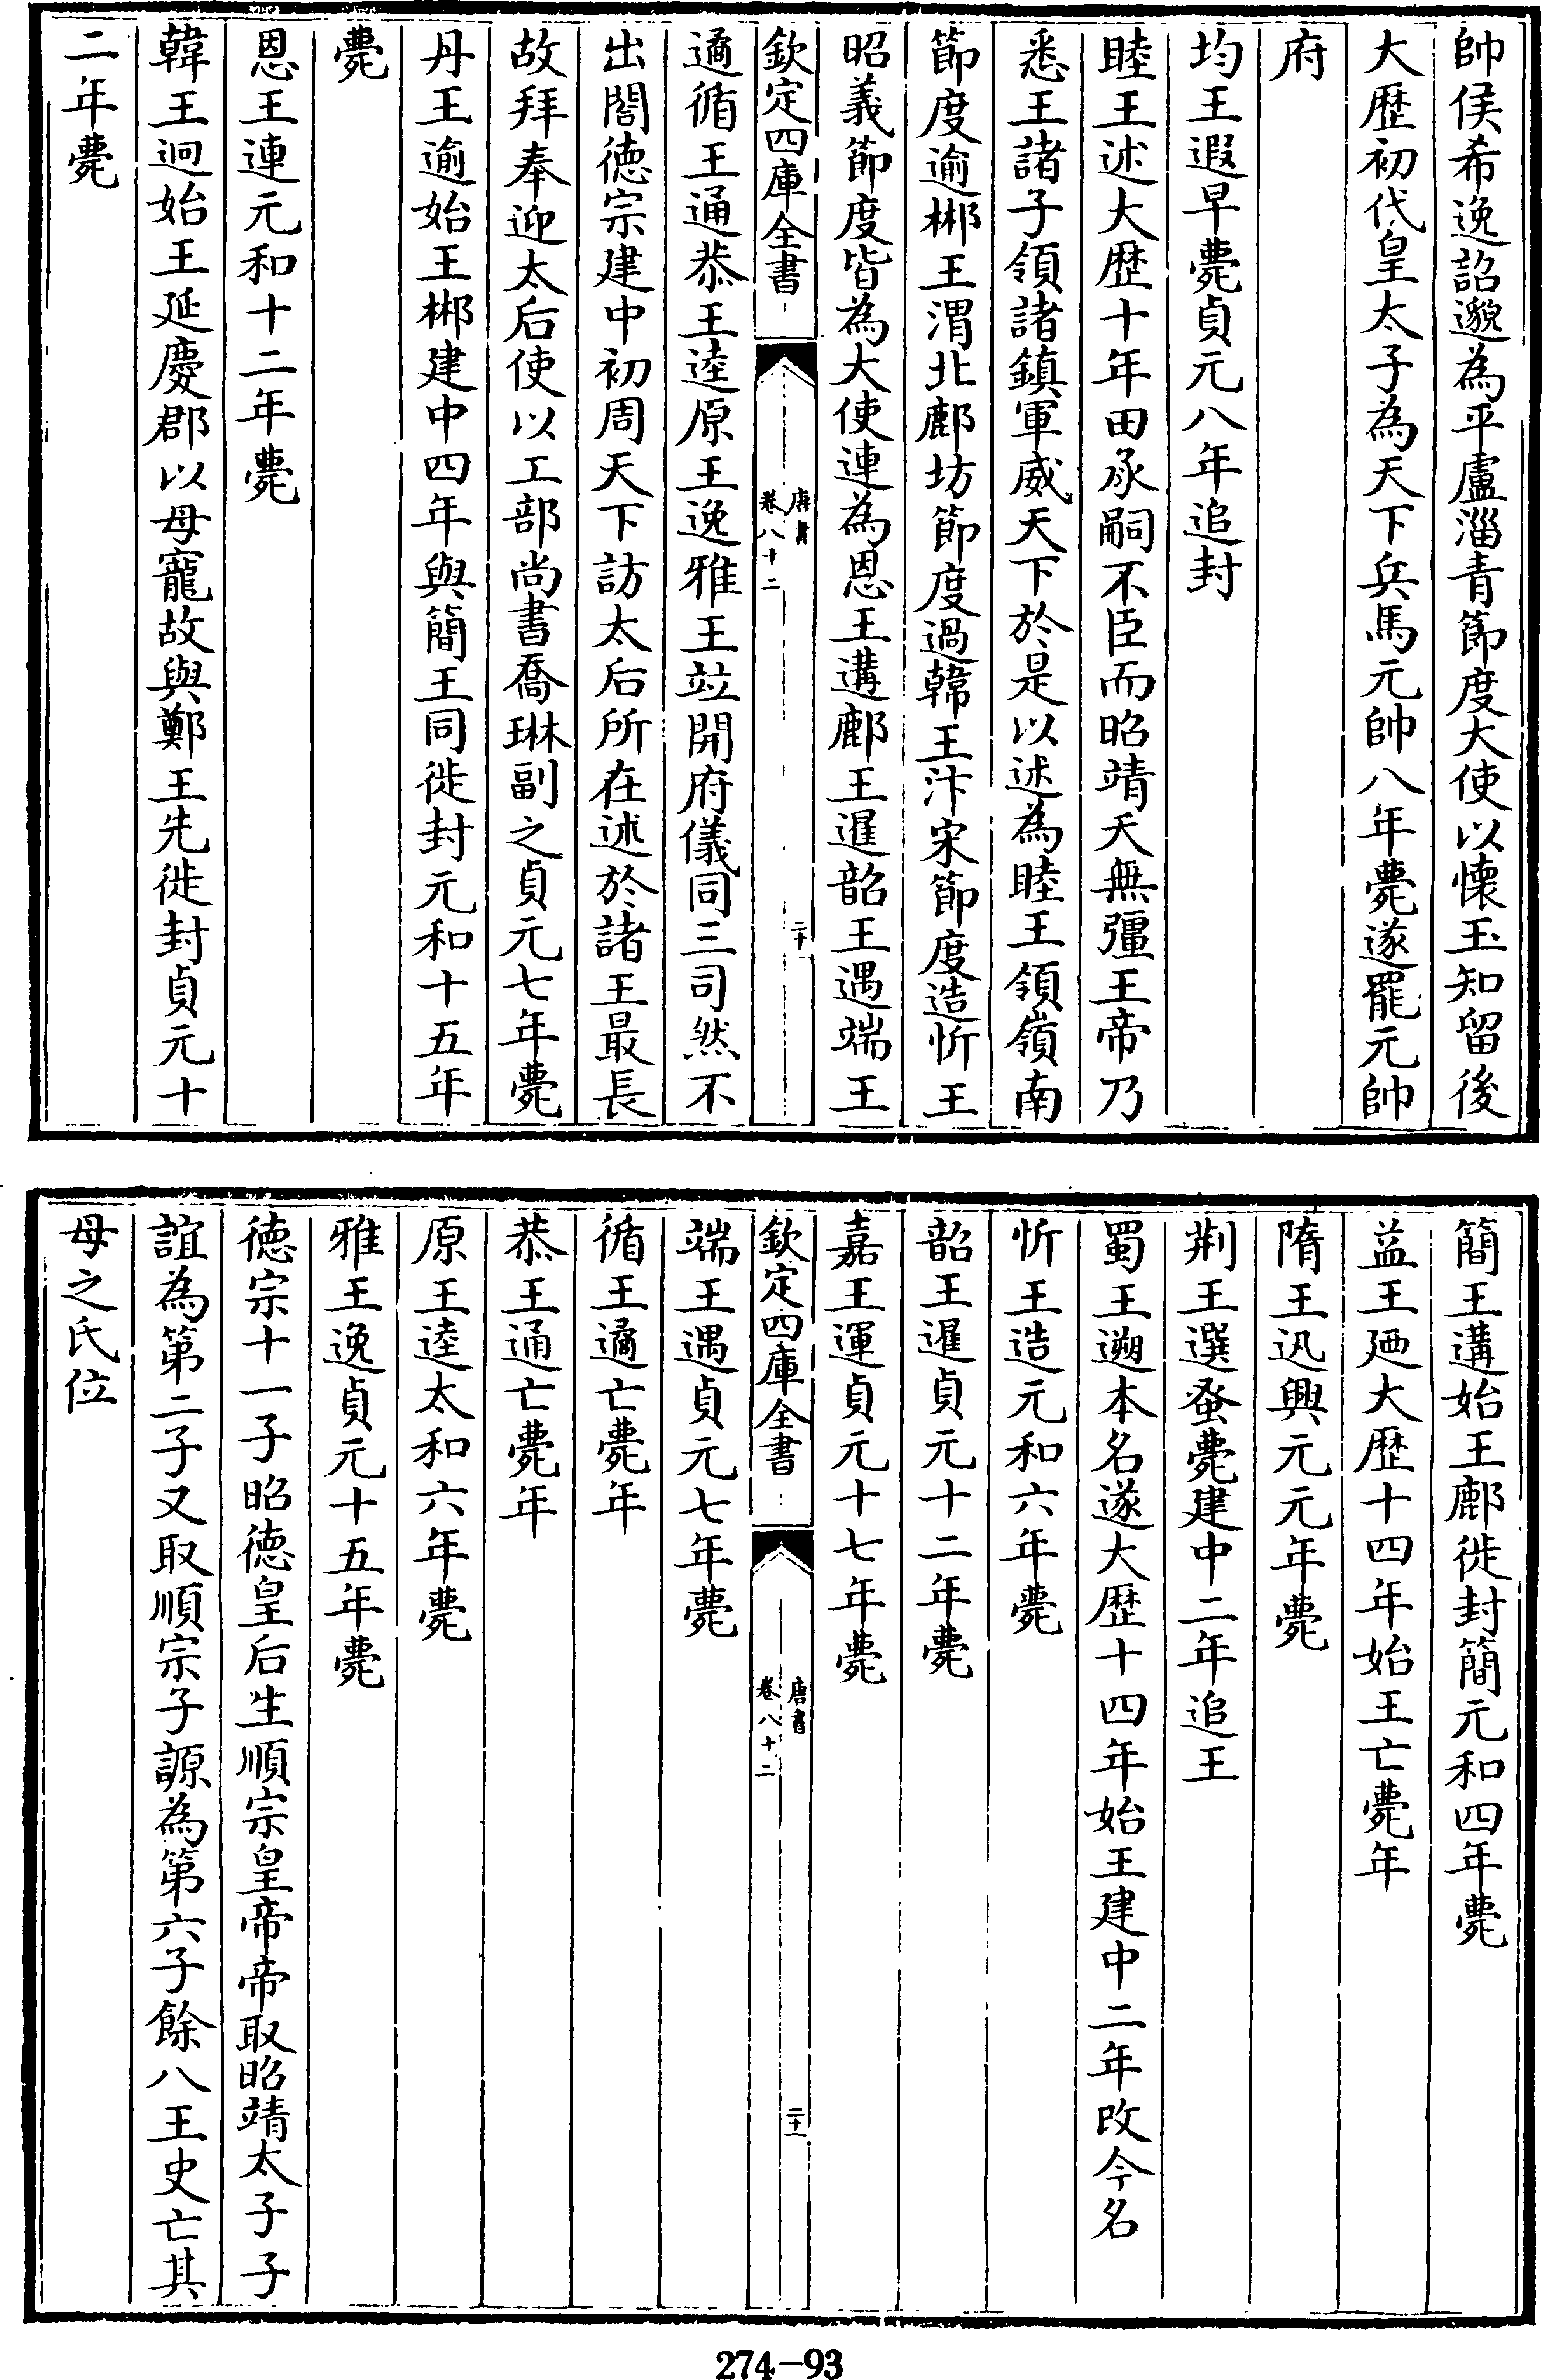 帥侯希逸詔邈為平盧淄青節度大使以懷玉知留後
大歴初代皇太子為天下兵馬元帥八年薨遂罷元帥
府
均王遐早薨貞元八年追封
睦王述大歴十年田承嗣不臣而昭靖夭無彊王帝乃
悉王諸子領諸鎮軍威天下於是以述為睦王領嶺南
節度逾郴王渭北鄜坊節度過韓王汴宋節度造忻王
昭義節度皆為大使連為恩王遘鄜王暹韶王遇端王
欽定四庫全書
唐書
卷八十二
二十
遹循王通恭王逵原王逸雅王竝開府儀同三司然不
出閤徳宗建中初周天下訪太后所在述於諸王最長
故拜奉迎太后使以工部尚書喬琳副之貞元七年薨
丹王逾始王郴建中四年與簡王同徙封元和十五年
薨
恩王連元和十二年薨
韓王迥始王延慶郡以母寵故與鄭王先徙封貞元十
二年薨
簡王遘始王鄜徙封簡元和四年薨
益王迺大歴十四年始王亡薨年
隋王迅興元元年薨
荆王選蚤薨建中二年追王
蜀王遡本名遂大歴十四年始王建中二年改今名
忻王造元和六年薨
韶王暹貞元十二年薨
嘉王運貞元十七年薨
欽定四庫全書
唐書
卷八十二
二十一
端王遇貞元七年薨
循王遹亡薨年
恭王通亡薨年
原王逵太和六年薨
雅王逸貞元十五年薨
徳宗十一子昭徳皇后生順宗皇帝帝取昭靖太子子
誼為第二子又取順宗子謜為第六子餘八王史亡其
母之氏位
274-93